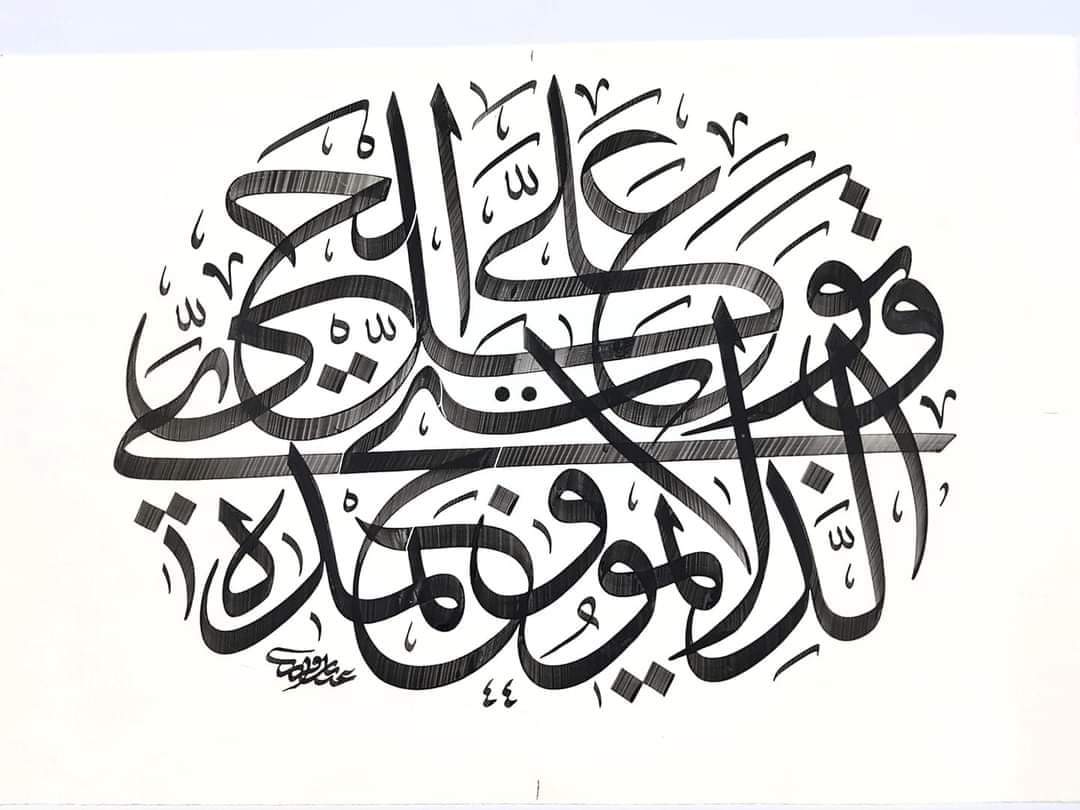 وَتَوَكَّلْ عَلَى الْحَيِّ
الَّذِي لَا يَمُوتُ وَسَبِّحْ بِحَمْدِهِ
٤٤